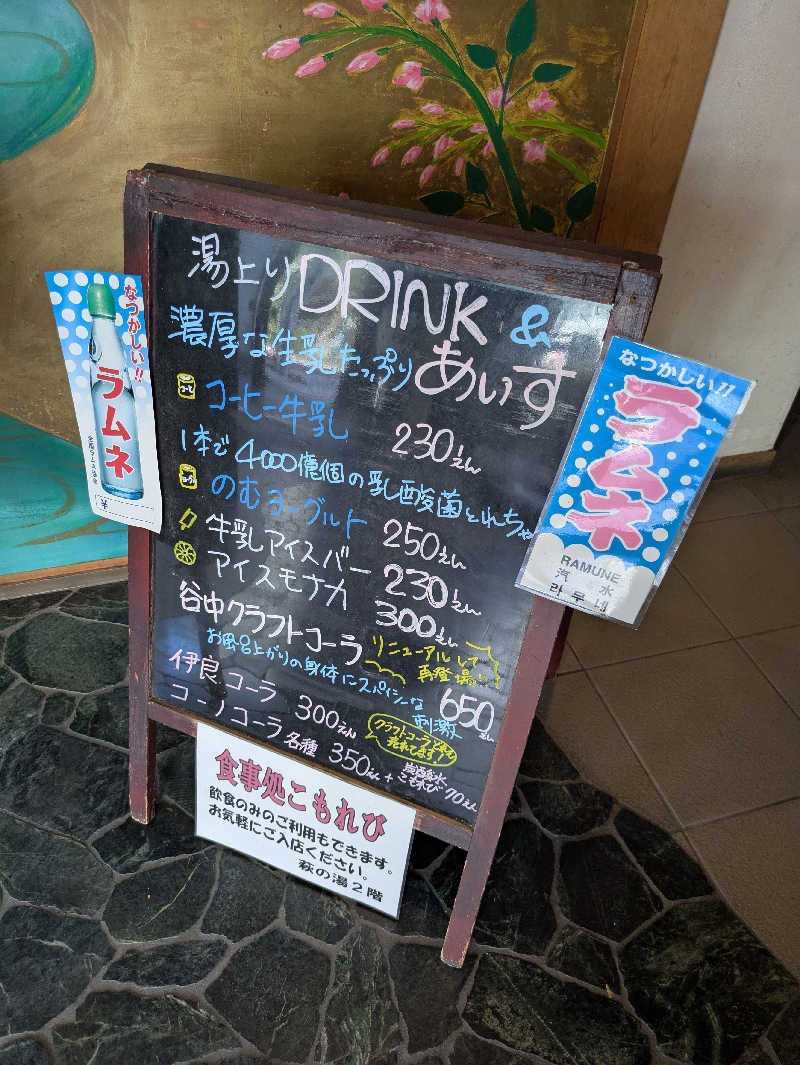 湯上り DRINK &
濃厚な生乳たっぷり あいす
コーヒー牛乳 230えん
1本で4000億個の乳酸菌とれちゃ
のむヨーグルト 250えん
牛乳アイスバー 230えん
アイスモナカ 300えん
谷中クラフトコーラ リニューアルして再登場!!
お風呂上がりの身体にスパイシーな刺激 650えん
伊良コーラ 300えん
クラフトコーラとても売れてます!
コーノコーラ 各種 350えん
こもれび 70えん
なつかしい!!
ラムネ
¥
なつかしい!!
ラムネ
RAMUNE
汽水
라무네
食事処こもれび
飲食のみのご利用もできます。
お気軽にご入店ください。
萩の湯2階